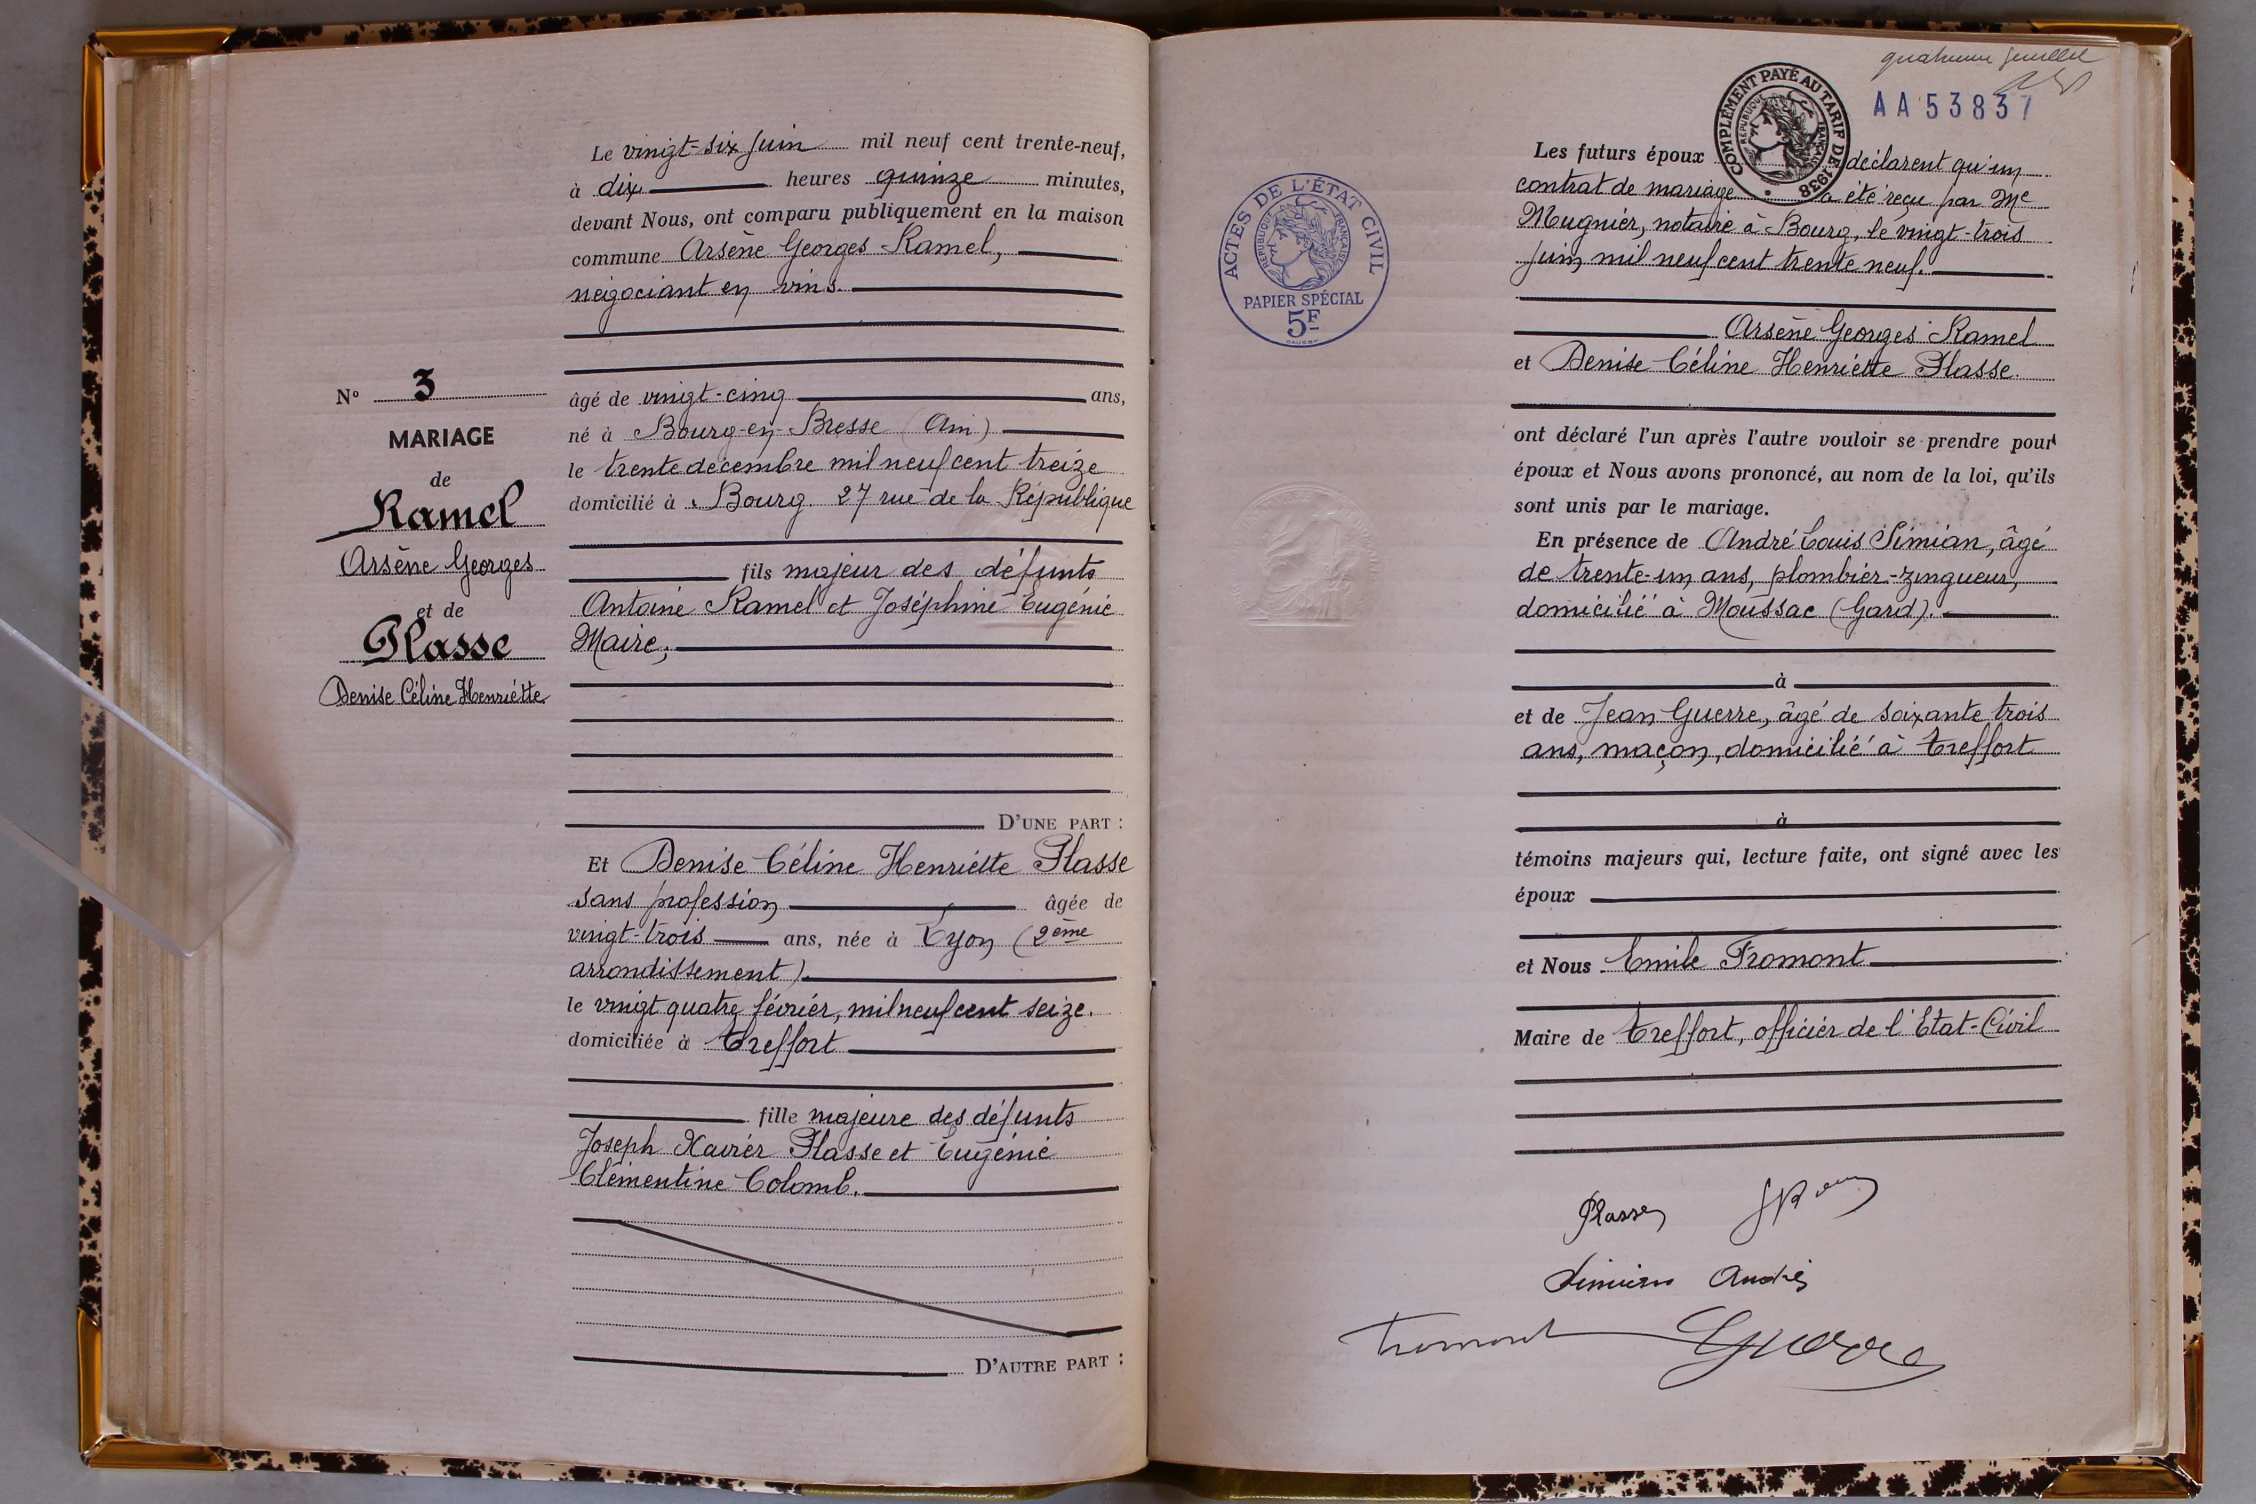 Le vingt-six Juin mil neuf cent trente-neuf,
à dix heures quinze minutes,
devant Nous, ont comparu publiquement en la maison
commune Arsène Georges Ramel,
négociant en vins.
No 3
MARIAGE
de
Ramel
Arsène Georges
et de
Plasse
Denise Céline Henriette
âgé de vingt-cinq ans,
né à Bourg-en-Bresse (Ain)
le trente décembre mil neuf cent treize
domicilié à Bourg 27 rue de la République
fils majeur des défunts
Antoine Ramel et Joséphine Eugénie
Maire,
D'UNE PART :
Et Denise Céline Henriette Plasse
sans profession âgée de
vingt-trois ans, née à Lyon (2ème
arrondissement)
le vingt quatre février, mil neuf cent seize.
domiciliée à Treffort
fille majeure des défunts
Joseph Xavier Plasse et Eugénie
Clémentine Colomb.
D'AUTRE PART :
feuillet
AA53837
COMPLÉMENT PAYÉ AU TARIF DE 1938
RÉPUBLIQUE FRANÇAISE
ACTES DE L'ÉTAT CIVIL
RÉPUBLIQUE FRANÇAISE
PAPIER SPÉCIAL
5F
Les futurs époux déclarent qu'un
contrat de mariage a été reçu par Me
Mugnier, notaire à Bourg, le vingt-trois
Juin mil neuf cent trente neuf.
Arsène Georges Ramel
et Denise Céline Henriette Plasse.
ont déclaré l'un après l'autre vouloir se prendre pour
époux et Nous avons prononcé, au nom de la loi, qu'ils
sont unis par le mariage.
En présence de André Louis Simian, âgé
de trente-un ans, plombier-zingueur,
domicilié à Moussac (Gard).
à
et de Jean Guerre, âgé de soixante trois
ans, maçon, domicilié à Treffort
à
témoins majeurs qui, lecture faite, ont signé avec les
époux
et Nous Emile Fromont
Maire de Treffort, officier de l'Etat-Civil
Plasse
Simian André
Fromont Guerre